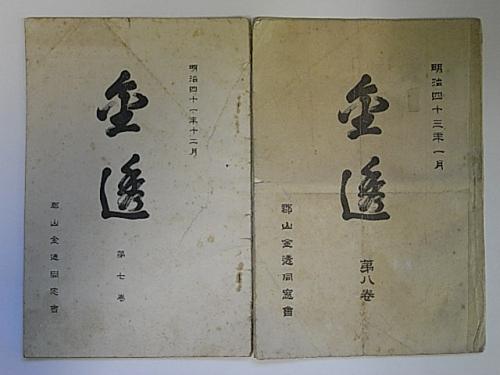 明治四十一年十二月
金透
第七巻
郡山金透同窓會
明治四十三年一月
金透
第八巻
郡山金透同窓會